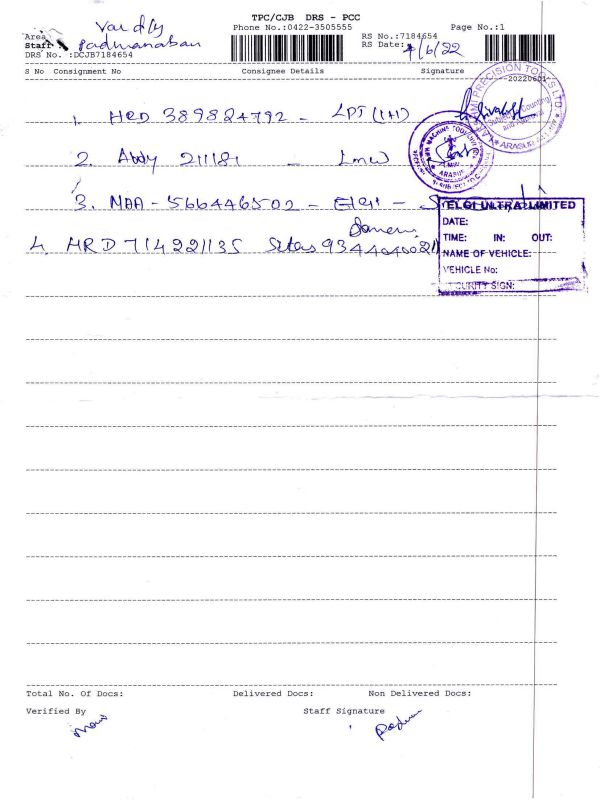 TPC/CJB DRS - PCC
Phone No.:0422-3505555
Page No.:1
Area
Staff :
Padmanaban
DRS No. :DCJB7184654
RS No.:7184654
RS Date: 1/6/22
S No Consignment No Consignee Details Signature
20220601
1. HRD 389824792 - LPT (IH)
2. Abdy 211181 - Lmw
3. MAA - 566446502 - Elgi -
4. HRD 714221135
PRECISION TOOLS LTD.
Subject to Counting
and Approval
ARASUR
LMW MACHINE TOOL
LMW
ARASUR
ELGI ULTRA LIMITED
DATE:
TIME: IN: OUT:
NAME OF VEHICLE:
VEHICLE No:
SECURITY SIGN:
Total No. Of Docs: Delivered Docs: Non Delivered Docs:
Verified By Staff Signature